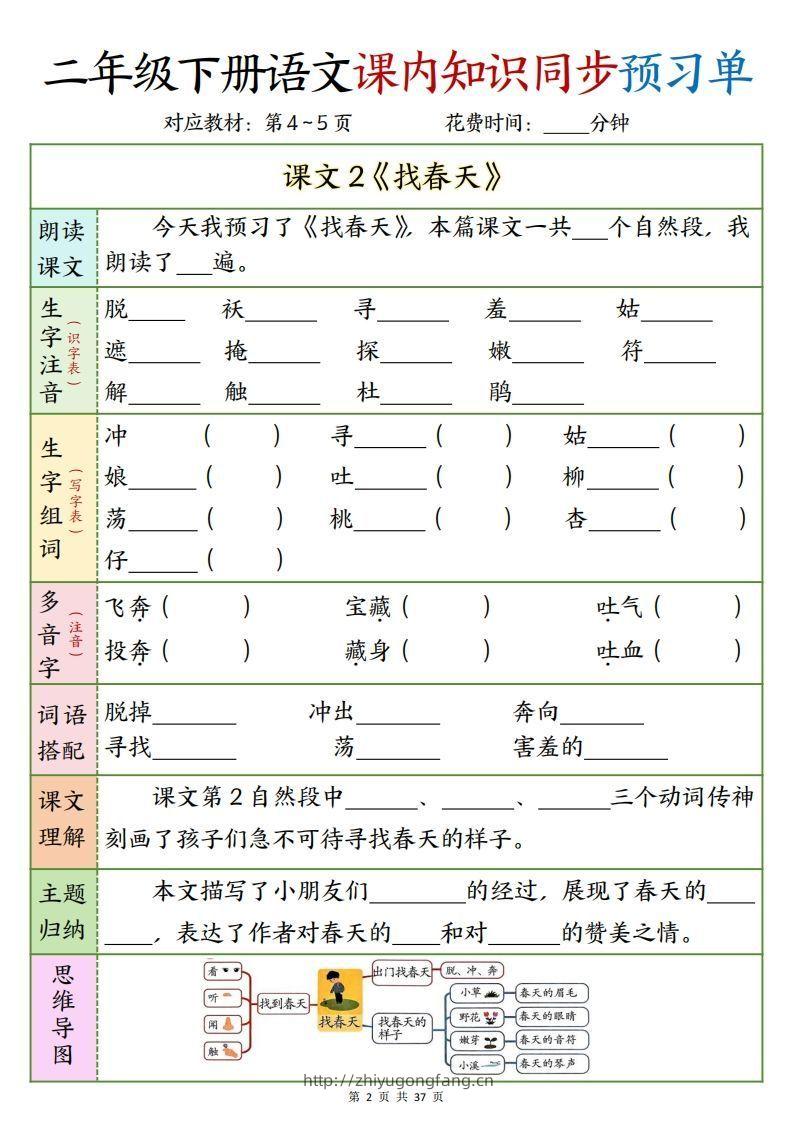 二年级下册语文课内知识同步预习单
对应教材：第4~5页 花费时间：____分钟
课文2《找春天》
朗读课文
今天我预习了《找春天》，本篇课文一共___个自然段，我
朗读了___遍。
生字注音（识字表）
脱_____ 袄______ 寻______ 羞______ 姑______
遮______ 掩______ 探______ 嫩______ 符______
解______ 触______ 杜______ 鹃______
生字组词（写字表）
冲 （ ） 寻______（ ） 姑______（ ）
娘______（ ） 吐______（ ） 柳______（ ）
荡______（ ） 桃______（ ） 杏______（ ）
仔______（ ）
多音字（注音）
飞奔（ ） 宝藏（ ） 吐气（ ）
投奔（ ） 藏身（ ） 吐血（ ）
词语搭配
脱掉_______ 冲出_______ 奔向_______
寻找_______ 荡_______ 害羞的_______
课文理解
课文第2自然段中______、______、______三个动词传神
刻画了孩子们急不可待寻找春天的样子。
主题归纳
本文描写了小朋友们________的经过，展现了春天的____
____，表达了作者对春天的____和对______的赞美之情。
思维导图
看
听
闻
触
找到春天
找春天
出门找春天
脱、冲、奔
找春天的样子
小草 春天的眉毛
野花 春天的眼睛
嫩芽 春天的音符
小溪 春天的琴声
http://zhiyugongfang.cn
第 2 页 共 37 页